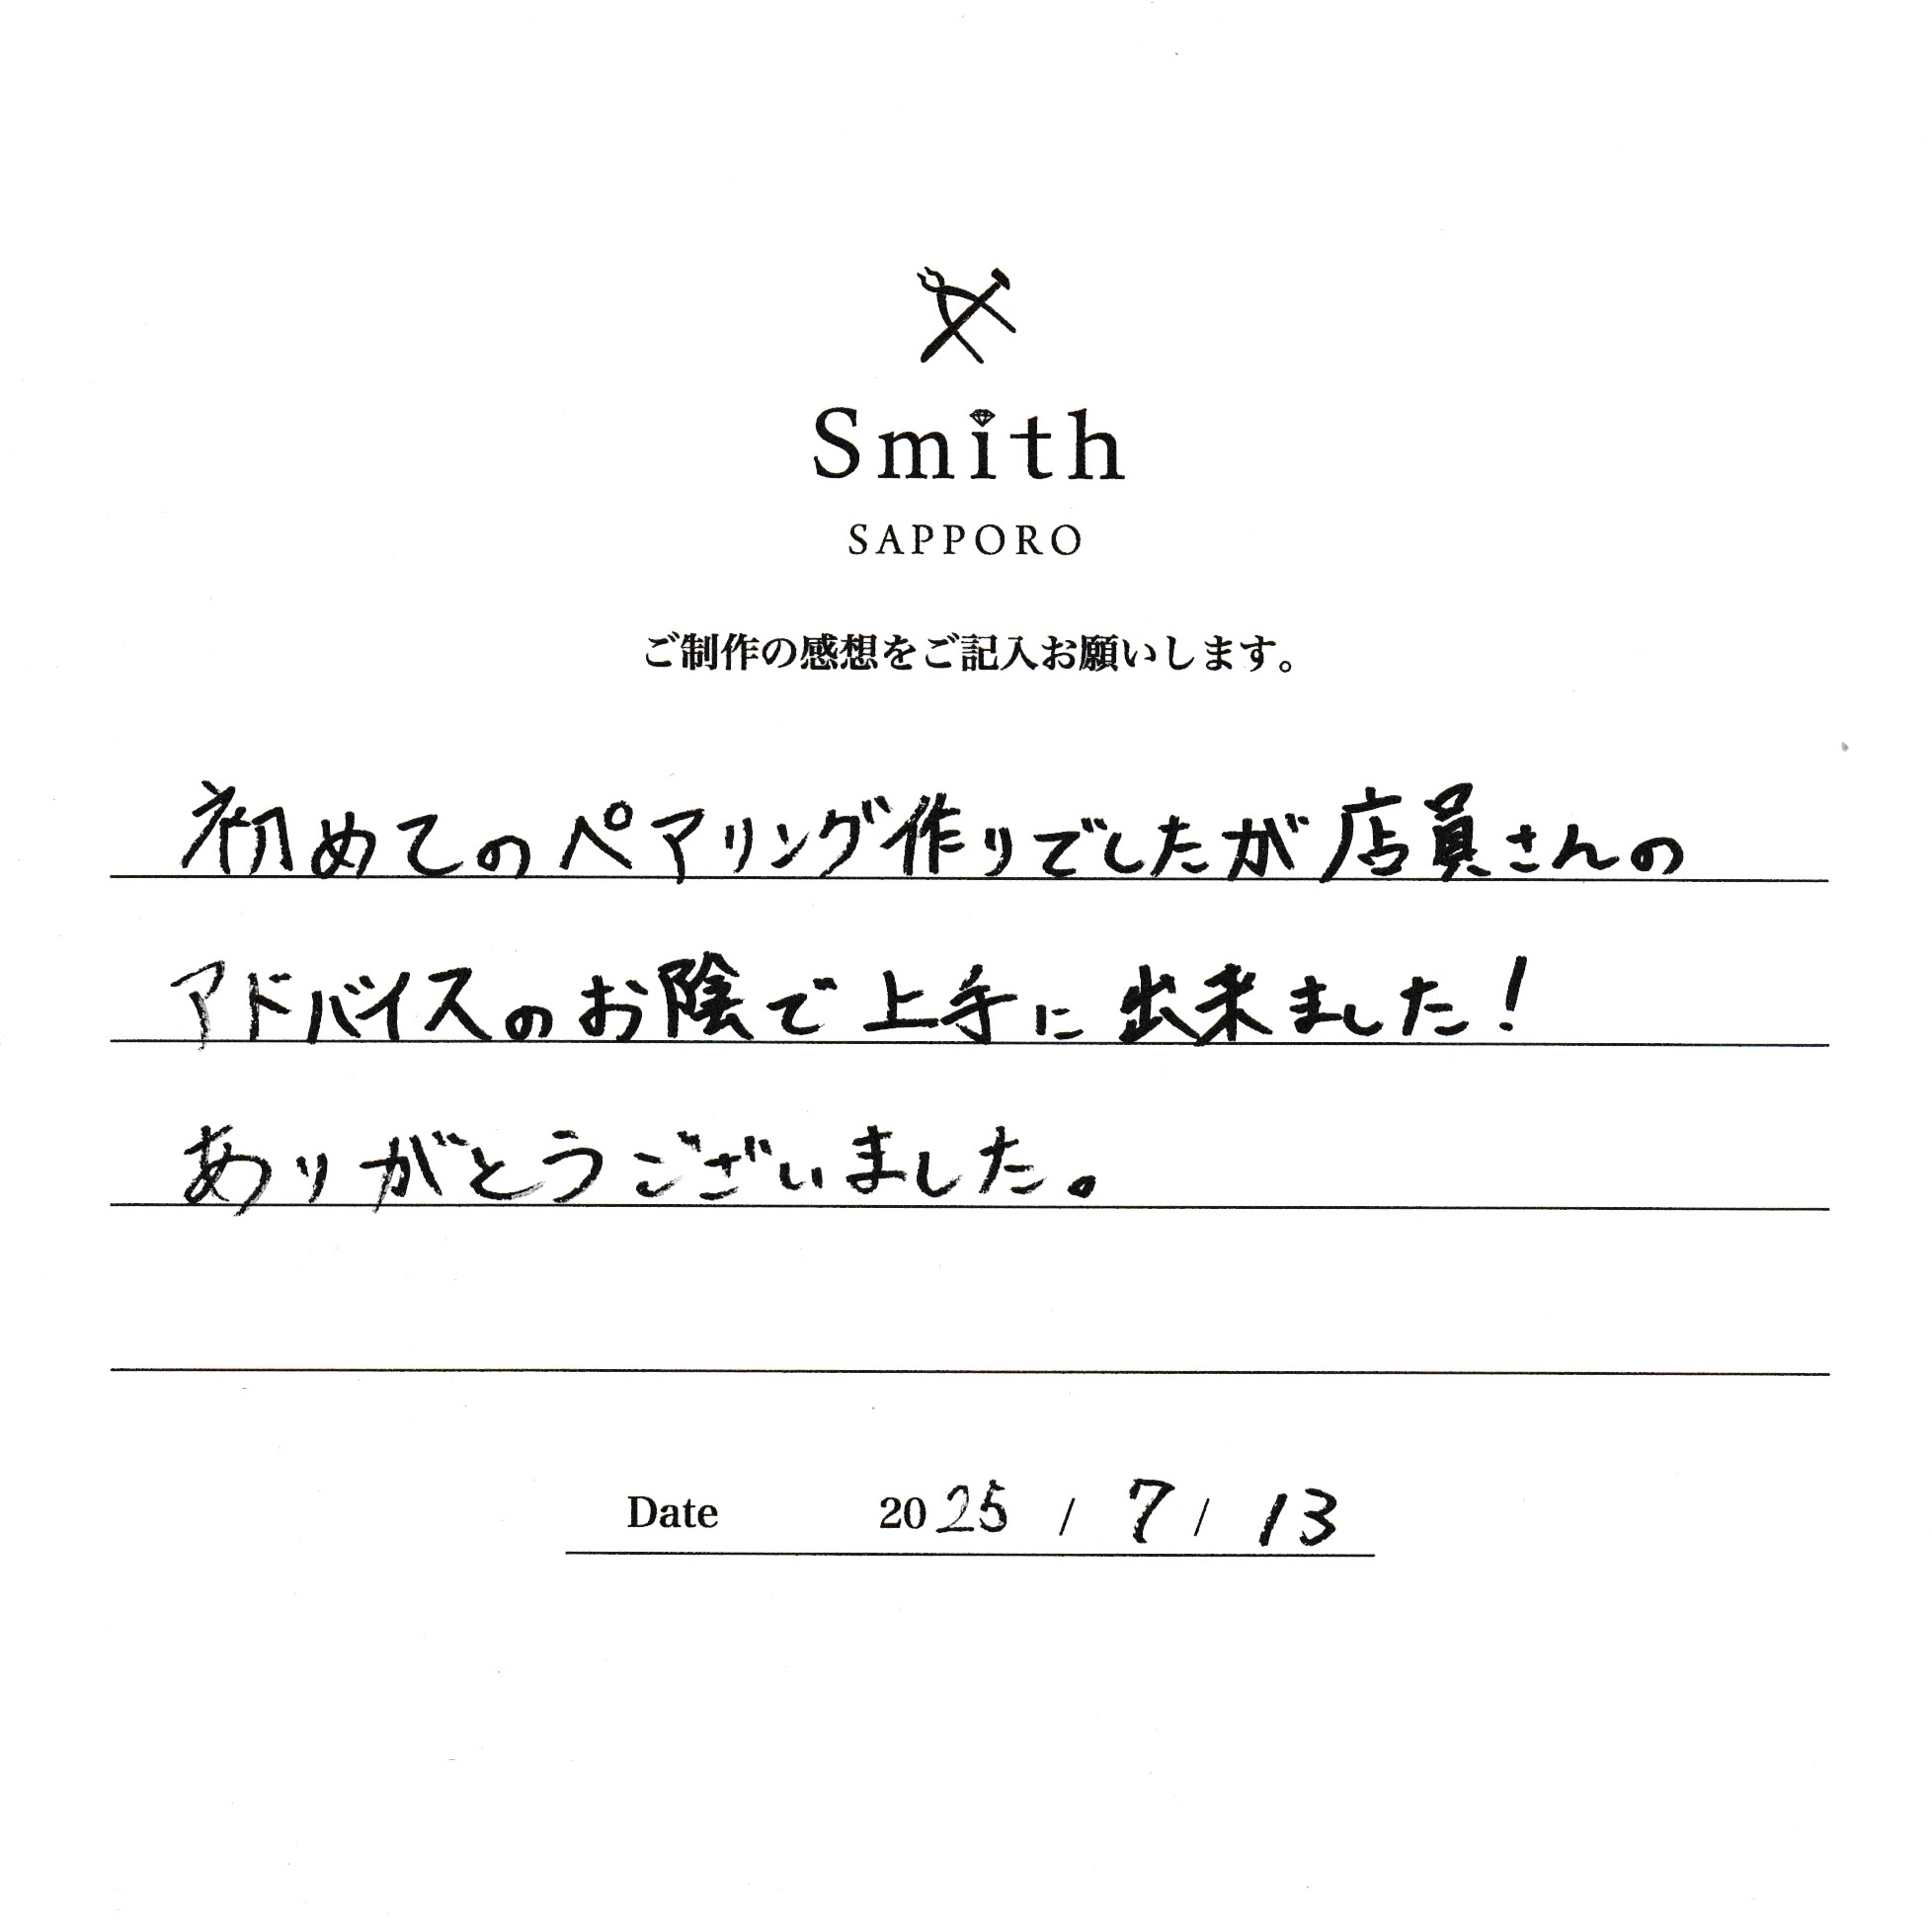 Smith
SAPPORO
ご制作の感想をご記入お願いします。
初めてのペアリング作りでしたが店員さんの
アドバイスのお陰で上手に出来ました!
ありがとうございました。
Date 2025 / 7 / 13